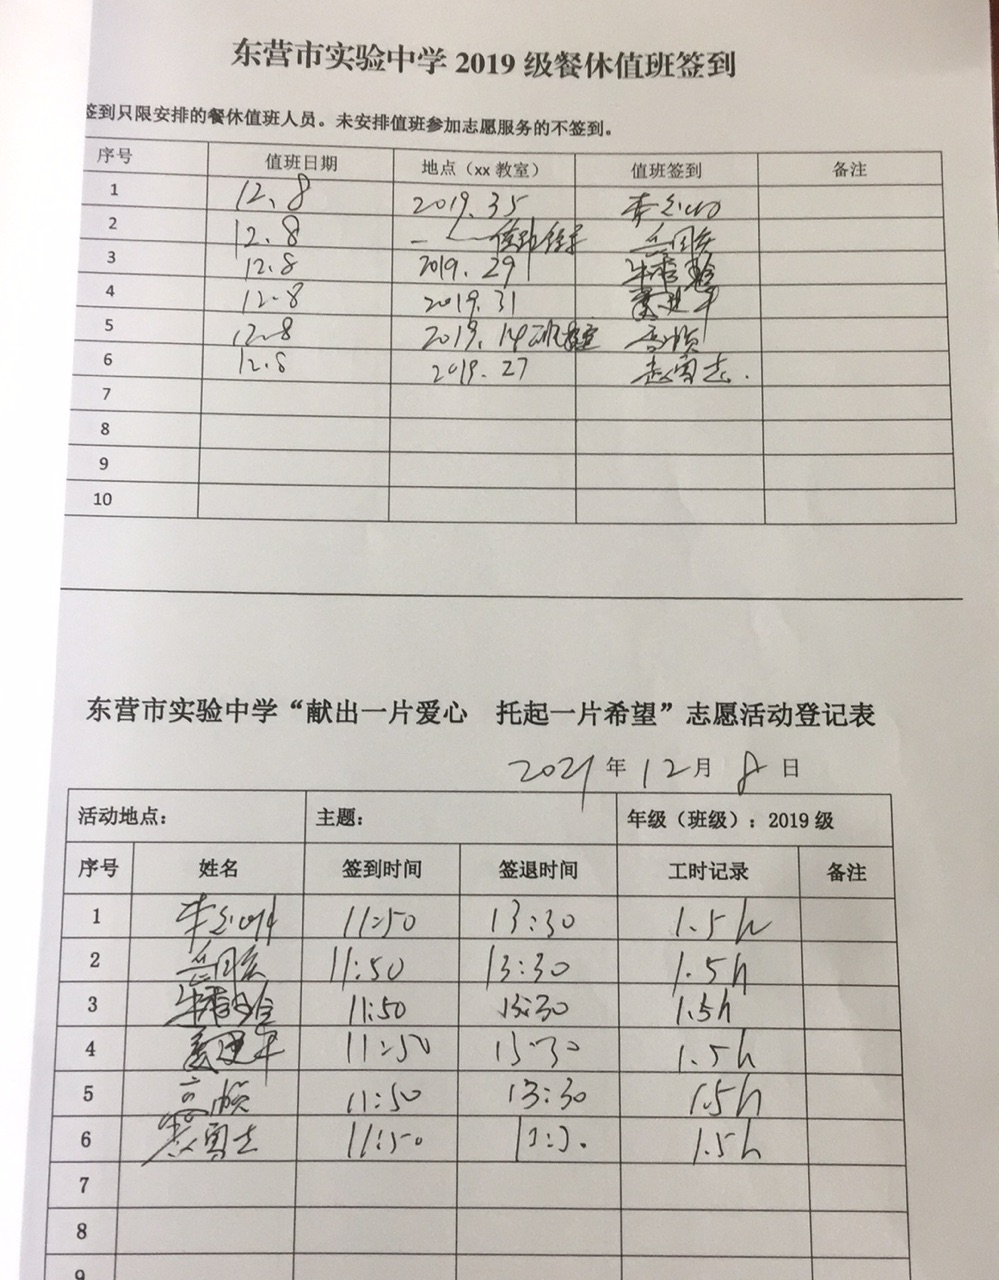 东营市实验中学 2019 级餐休值班签到
签到只限安排的餐休值班人员。未安排值班参加志愿服务的不签到。
序号 值班日期 地点（xx 教室） 值班签到 备注
1 12.8 2019.35
2 12.8
3 12.8 2019.29
4 12.8 2019.31
5 12.8 2019.14班教室 高顺
6 12.8 2019.27 赵寅志.
7
8
9
10
东营市实验中学“献出一片爱心 托起一片希望”志愿活动登记表
2021年 12月 8日
活动地点： 主题： 年级（班级）：2019 级
序号 姓名 签到时间 签退时间 工时记录 备注
1 11:50 13:30 1.5h
2 11:50 13:30 1.5h
3 11:50 13:30 1.5h
4 11:50 13:30 1.5h
5 高顺 11:50 13:30 1.5h
6 赵寅志 11:50 1.5h
7
8
9